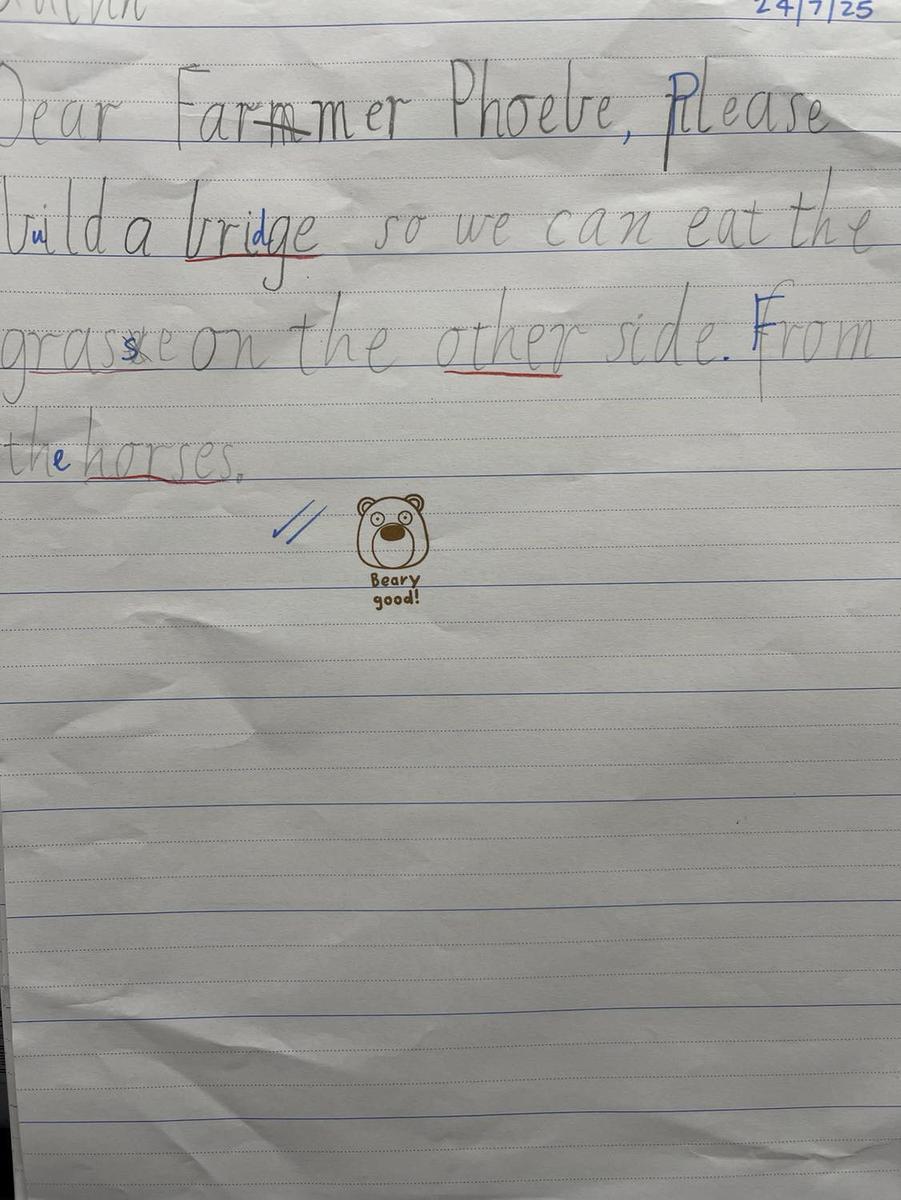 24/7/25
Dear Farmmer Phoebe, Please
build a bridge so we can eat the
grasse on the other side. From
the horses.
Beary
good!